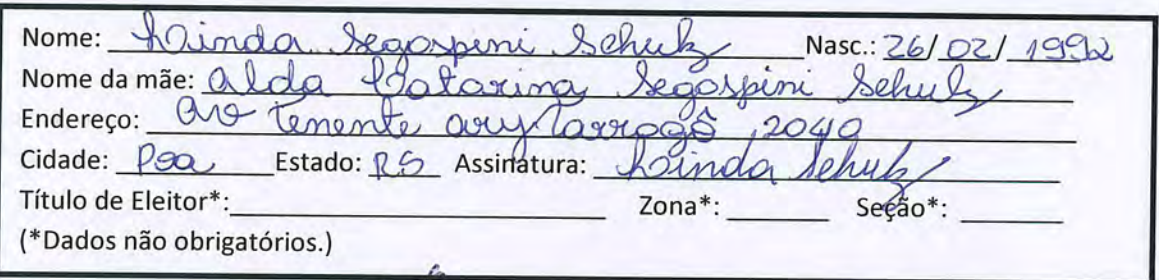 Nome: Linda Segospini Schulz Nasc.: 26/02/1992
Nome da mãe: Alda Catarina Segospini Schulz
Endereço: Av Tenente Ary Tarragô, 2040
Cidade: Poa Estado: RS Assinatura: Linda Schulz
Título de Eleitor*: Zona*: Seção*:
(*Dados não obrigatórios.)